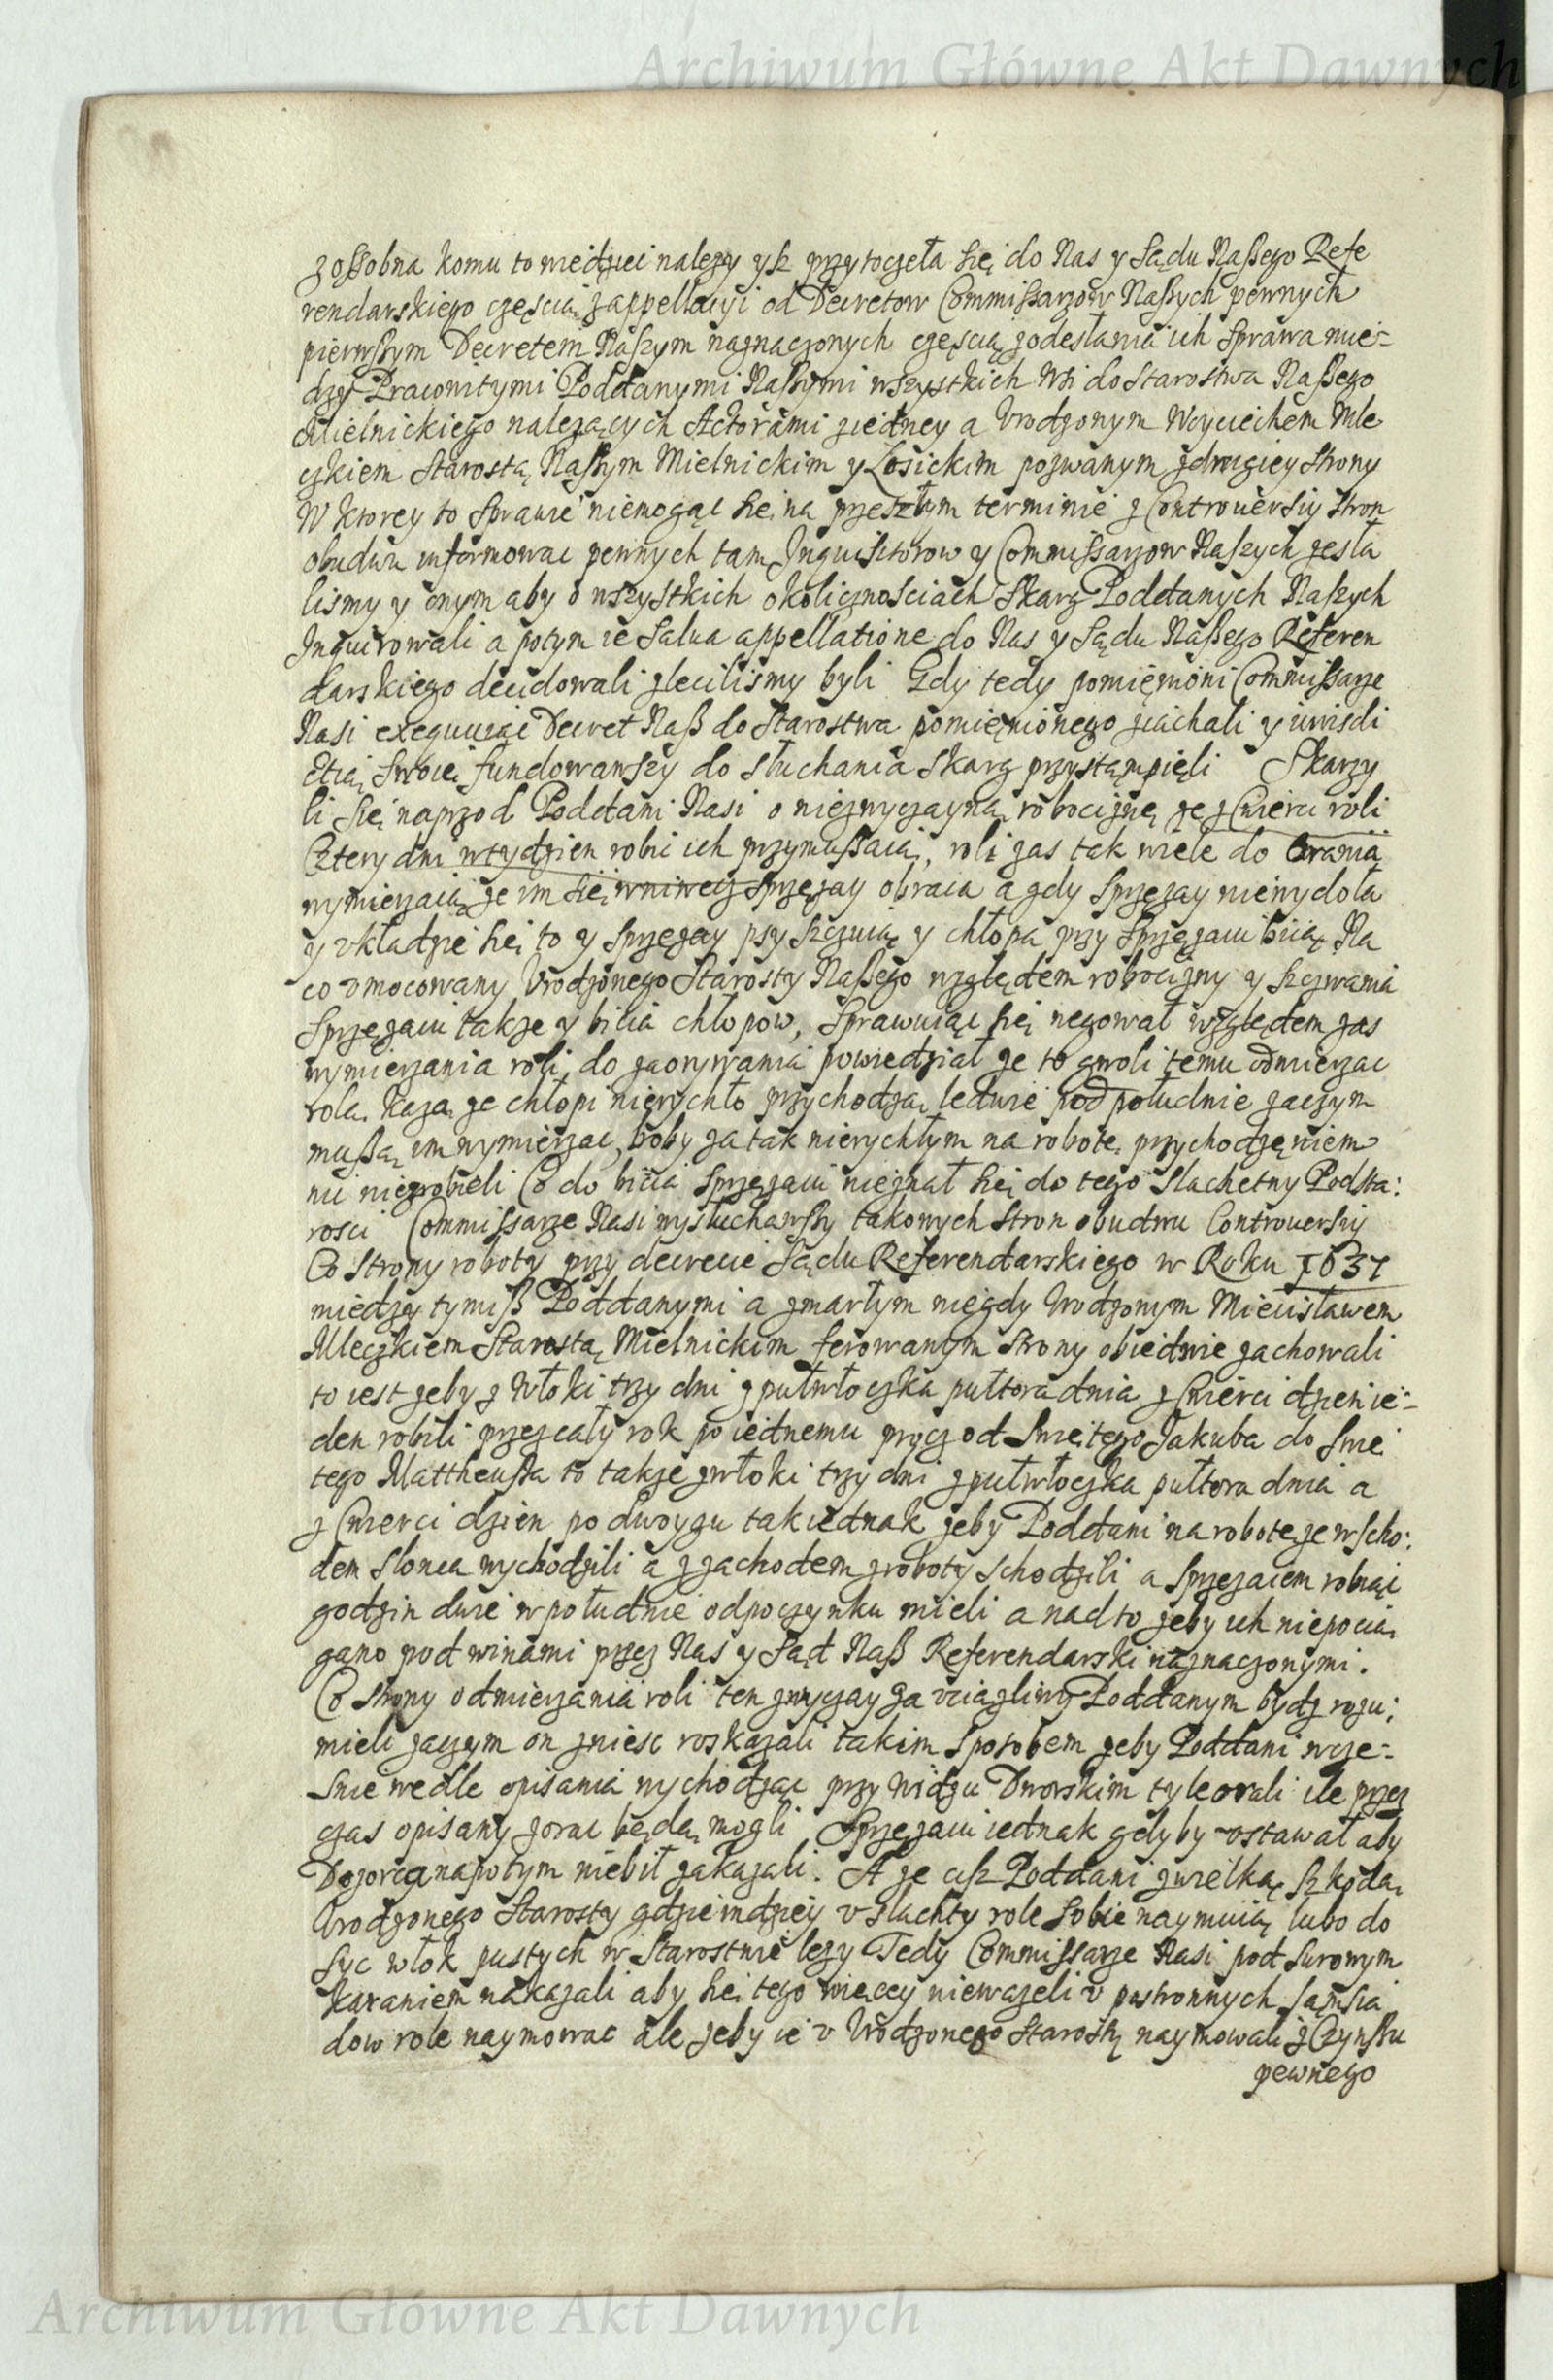 Archiwum Główne Akt Dawnych
zossobna komu to wiedziec nalezy ysz przytoczeła się do Nas y Sądu Naszego Refe
rendarskiego częscią zappellacyi od Decretow Commissarzow Naszych pewnych
pierwszym Decretem Naszym naznaczonych częscią zodesłania ich Sprawa mie=
dzy Pracowitymi Poddanymi Naszymi wszystkich Wsi do Starostwa Naszego
Mielnickiego nalezących Actorami ziedney a Vrodzonym Woyciechem Mle
czkiem Starostą Naszym Mielnickim y Łosickim pozwanym zdrugiey strony
W ktorey to Sprawie niemogąc się na przeszłym terminie z Controuersiy stron
obudwu informowac pewnych tam Inquisitorow y Commissarzow Naszych zesła
lismy y onym aby o wszystkich okolicznosciach Skarg Poddanych Naszych
Inquirowali a potym ie Salua appellatione do Nas y Sądu Naszego Referen
darskiego decidowali zlecilismy byli Gdy tedy pomięnioni Commissarze
Nasi exequuiąc Decret Nasz do Starostwa pomięnionego ziachali y iurisdi
ctią Swoię fundowawszy do słuchania skarg przystąmpięli Skarzy
li się naprzod Poddani Nasi o niezwyczayną robociznę ze z Cwierci roli
Cztery dni wtydzien robic ich przymuszaią, roli zas tak wiele do Orania
wymierzaią ze im się wniwecz sprzęzay obraca a gdy Sprzęzay niewydoła
y vkładzie się to y Sprzęzay psy szczuią y chłopa przy Sprzęzaiu biią Na
co vmocowany Vrodzonego Starosty Naszego względem robocizny y szczwania
Sprzęzaiu takze y bicia chłopow, Sprawuiąc się negował względem zas
wymierzania roli, do zaorywania powiedział ze to gwoli temu odmierzac
rola kazą ze chłopi nierychło przychodzą ledwie pod południe zaczym
muszą im wymierzac, boby za tak nierychłym na robotę przychodzęniem
nic niezrobieli Co do bicia Sprzęzaiu nieznał się do tego Slachetny Podsta:
rosci Commissarze Nasi wysłuchawszy takowych stron obudwu Controuersiy
Co strony roboty przy decrecie Sądu Referendarskiego w Roku 1637
miedzy tymisz Poddanymi a zmarłym niegdy Vrodzonym Miecisławem
Mleczkiem Starostą Mielnickim ferowanym strony obiedwie zachowali
to iest zeby z Włoki trzy dni z pułwłoczka pułtora dnia z Cwierci dzien ie=
den robili przez cały rok po iednemu prócz od Swiętego Jakuba do Swię
tego Mattheusza to takze zwłoki trzy dni z pułwłoczka pułtora dnia a
z Cwierci dzien po dwoygu tak iednak zeby Poddani na robotę ze wscho:
dem Slonca wychodzili a z zachodem zroboty schodzili a Sprzezaiem robiąc
godzin dwie w południe odpoczynku mieli a nad to zeby ich niepocią
gano pod winami przez Nas y Sąd Nasz Referendarski naznaczonymi.
Co strony odmierzania roli ten zwyczay za vciązliwy Poddanym bydz rozu:
mieli zaczym on zniesc roskazali takim sposobem zeby Poddani wcze=
snie wedle opisania wychodząc przy Widzu Dworskim tyle orali ile przez
czas opisany zorac będą mogli Sprzęzaiu iednak gdyby vstawał aby
Dozorca napotym niebił zakazali. A ze cisz Poddani zwielką szkodą
Vrodzonego Starosty gdzieindziey v slachty role sobie naymuią lubo do
syc włok pustych w Starostwie lezy Tedy Commissarze Nasi pod surowym
karaniem nakazali aby się tego więcey niewazeli v postronnych sąmsia
dow role naymowac ale zeby ie v Vrodzonego Starosty naymowali z Czynszu
pewnego
Archiwum Główne Akt Dawnych